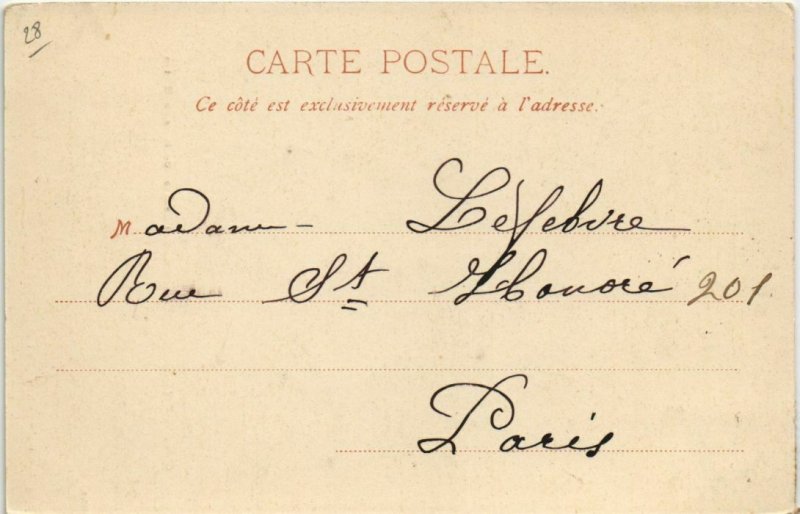 28
CARTE POSTALE.
Ce côté est exclusivement réservé à l'adresse.
Madame Lefebvre
Rue St Honoré 201
Paris